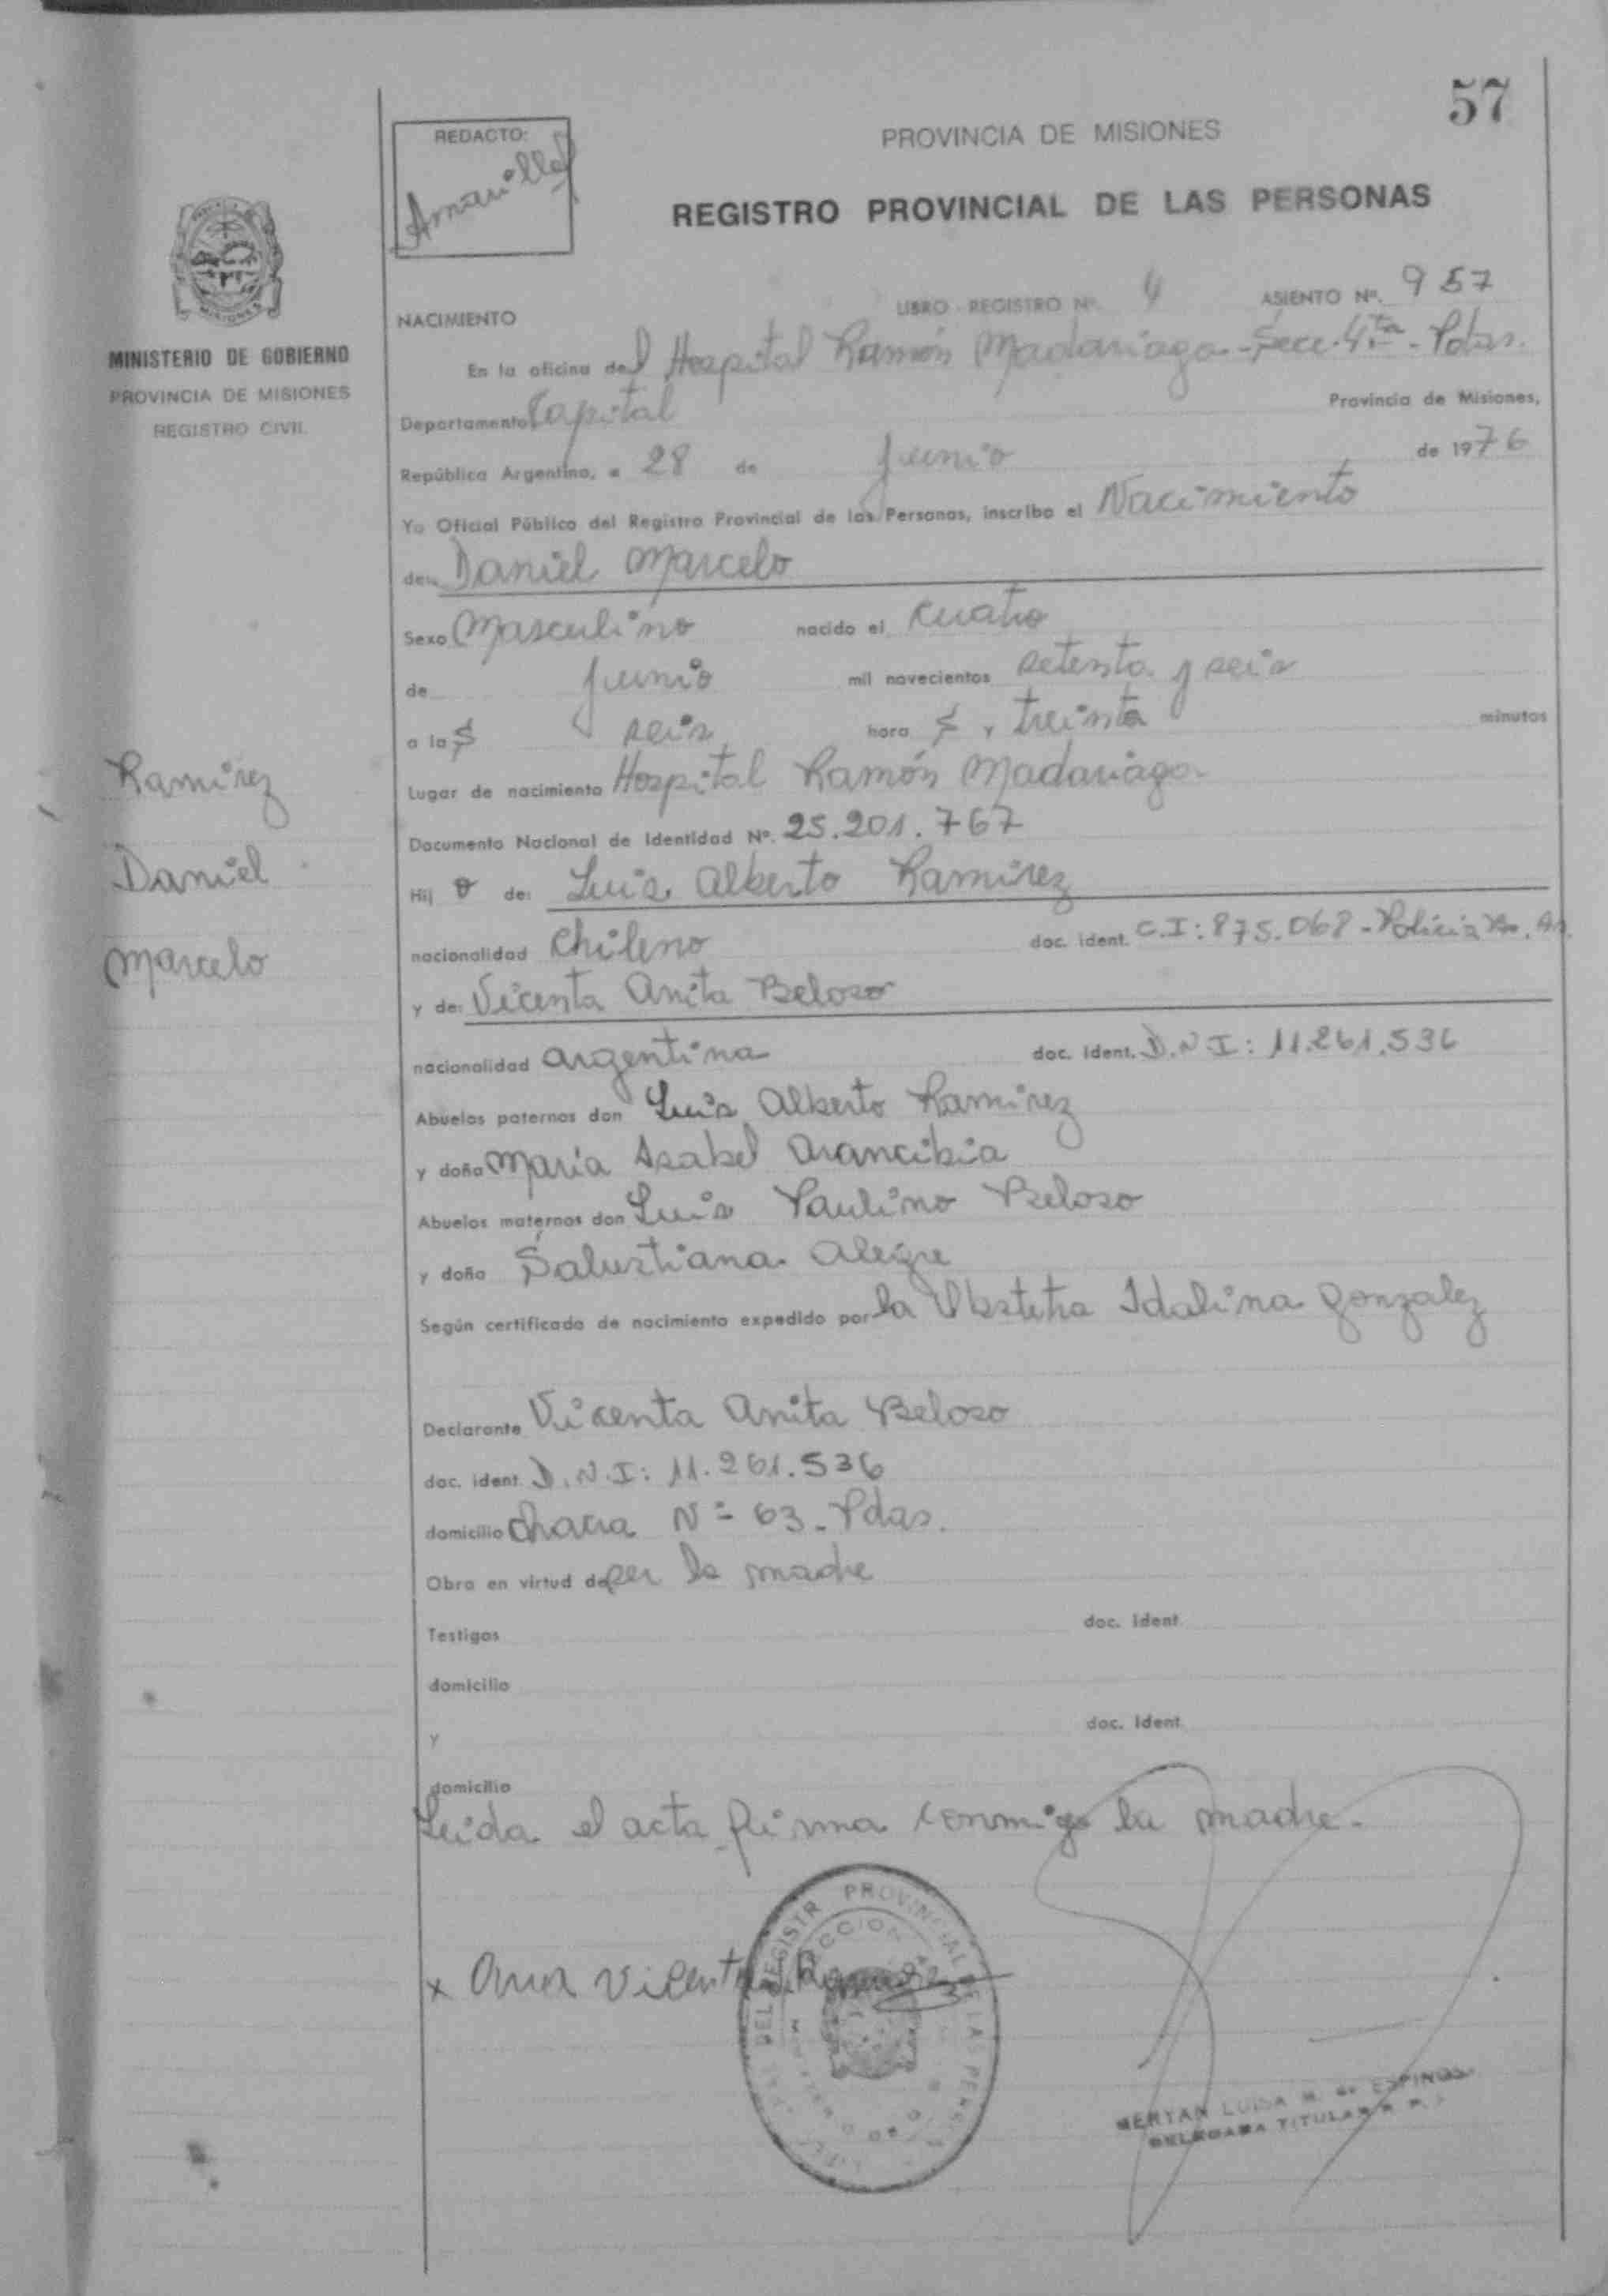 57
REDACTO:
PROVINCIA DE MISIONES
REGISTRO PROVINCIAL DE LAS PERSONAS
MINISTERIO DE GOBIERNO
PROVINCIA DE MISIONES
REGISTRO CIVIL
NACIMIENTO LIBRO - REGISTRO Nº. 4 ASIENTO Nº. 957
En la oficina del Hospital Ramón Madariaga - Secc. 4ta - Pdas.
Departamento Capital Provincia de Misiones,
República Argentina, a 28 de junio de 1976
Yo Oficial Público del Registro Provincial de las Personas, inscribo el Nacimiento
de: Daniel Marcelo
Sexo Masculino nacido el cuatro
de junio mil novecientos setenta y seis
a la s seis hora s y treinta minutos
Lugar de nacimiento Hospital Ramón Madariaga
Documento Nacional de Identidad Nº. 25.201.767
Hij o de: Luis Alberto Ramirez
nacionalidad Chileno doc. ident. C.I: 875.068 - Policia
y de: Vicenta Anita Beloso
nacionalidad argentina doc. ident. D.N.I: 11.261.536
Abuelos paternos don Luis Alberto Ramirez
y doña Maria Isabel Arancibia
Abuelos maternos don Luis Paulino Beloso
y doña Salustiana Alegre
Según certificado de nacimiento expedido por la Obstetra Idalina Gonzalez
Declarante Vicenta Anita Beloso
doc. ident. D.N.I: 11.261.536
domicilio Chacra Nº 63 - Pdas.
Obra en virtud de ser la madre
Testigos doc. ident.
domicilio
y doc. ident.
domicilio
Leida el acta firma conmigo la madre.
Ramirez
Daniel
Marcelo
x Ana Vicenta
REGISTR PROVINCIAL DE LAS
LUISA M. de ESPINOSA
DELEGADA TITULAR R. P.